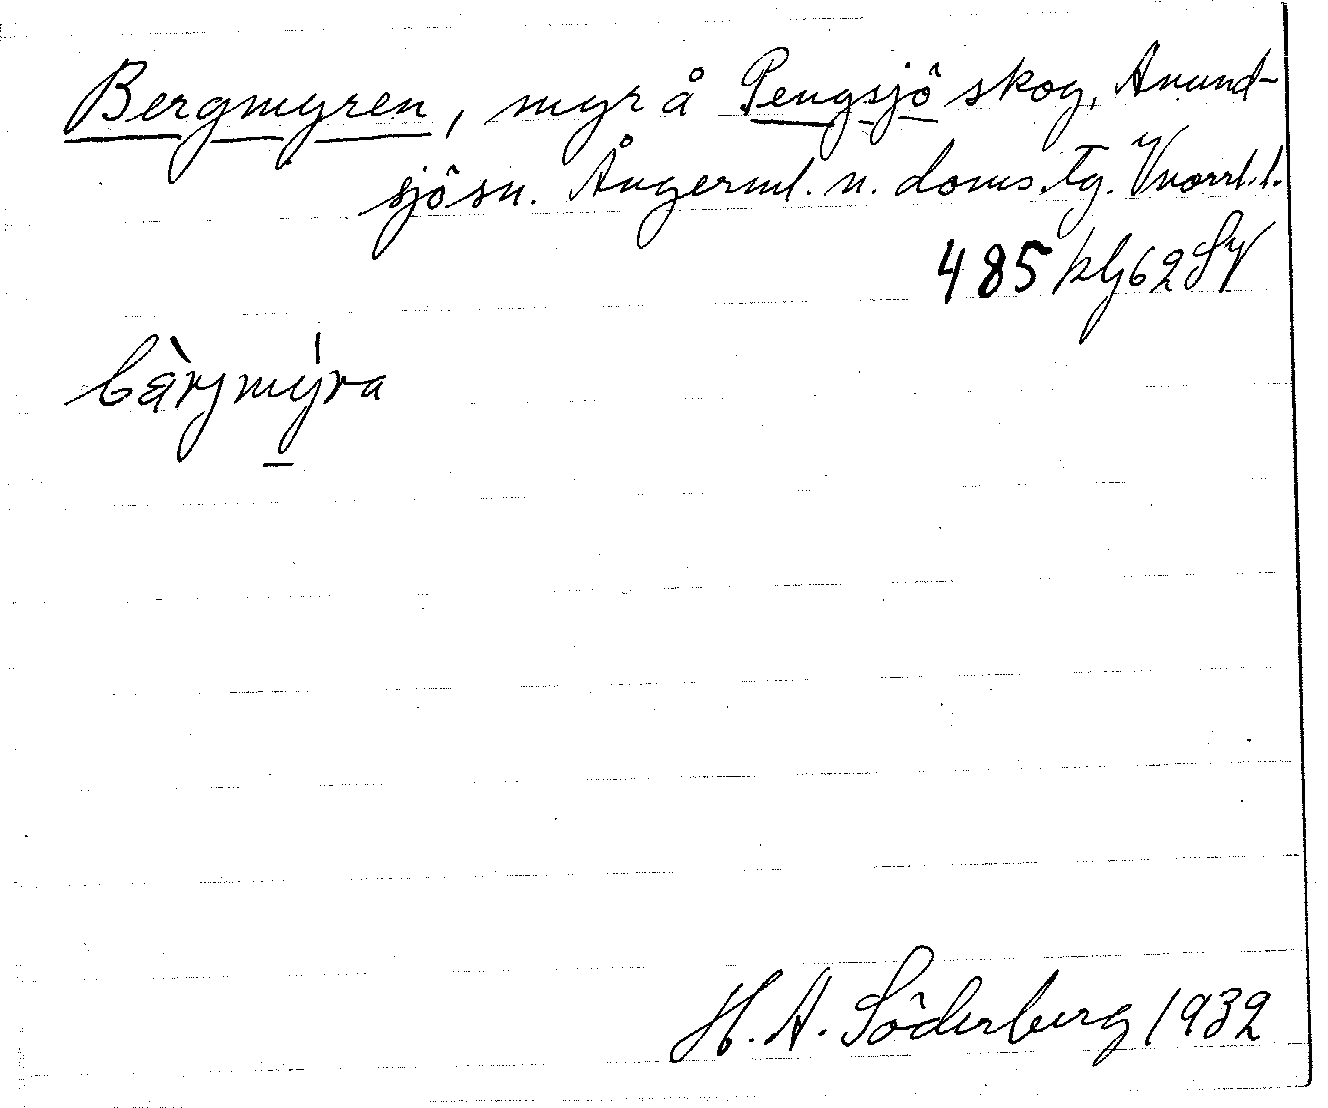 Bergmyren, myr å Pengsjö skog, Anund-
sjö sn. Ångerml. n. doms. tg. Vnorrl. l.
485 klj 62 SV
bärjmýra
H. A. Söderberg 1932